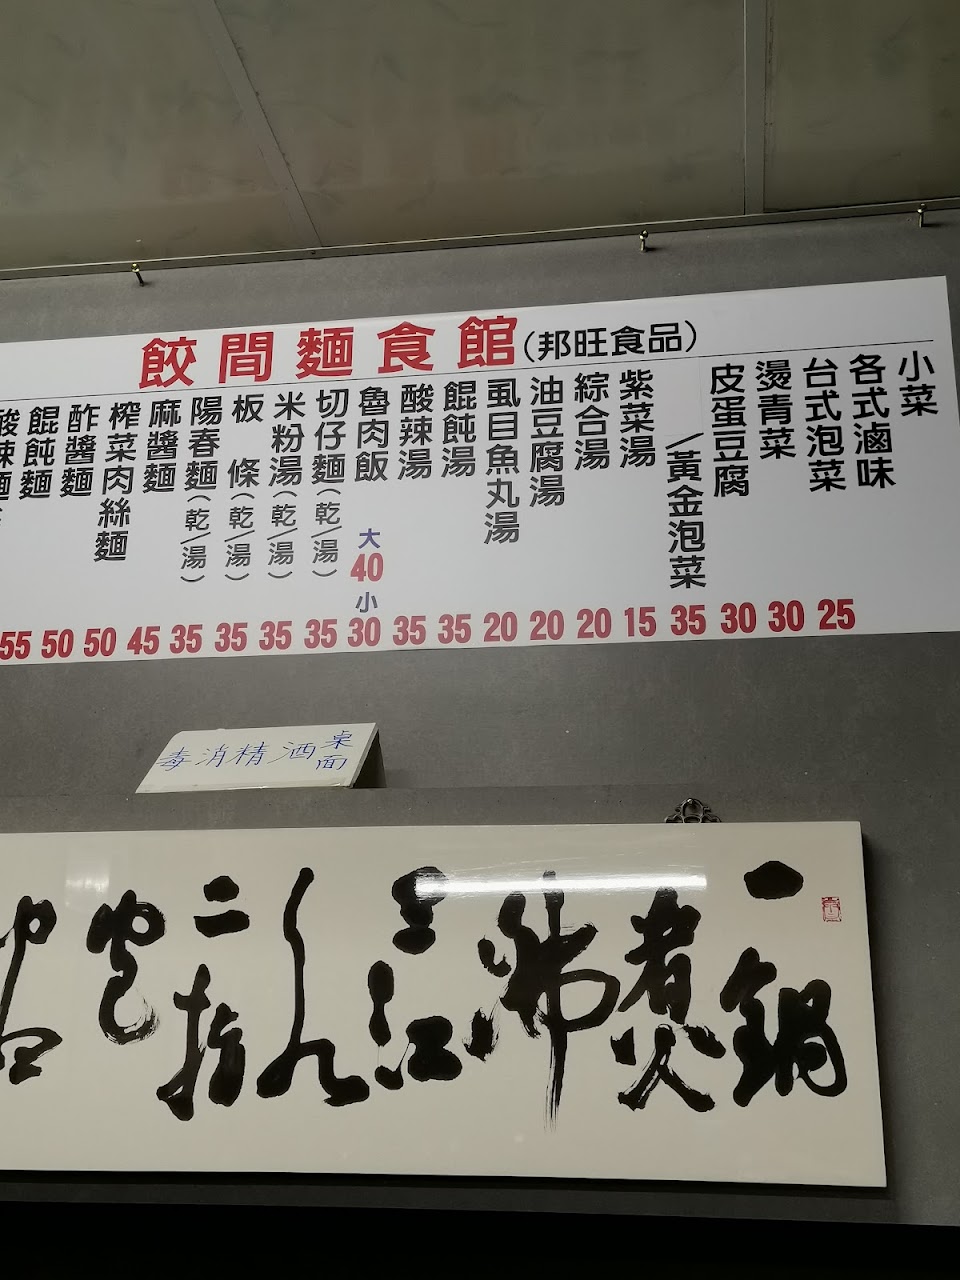 餃間麵食館(邦旺食品)
小菜
各式滷味 25
台式泡菜 30
燙青菜 30
皮蛋豆腐
/黃金泡菜 35
紫菜湯 15
綜合湯 20
油豆腐湯 20
虱目魚丸湯 20
餛飩湯 35
酸辣湯 35
魯肉飯 大40 小30
切仔麵(乾/湯) 35
米粉湯(乾/湯) 35
板條(乾/湯) 35
陽春麵(乾/湯) 35
麻醬麵
榨菜肉絲麵 45
酢醬麵 50
餛飩麵 50
酸辣麵 55
桌面
酒精消毒
一鍋煮沸江水
二指